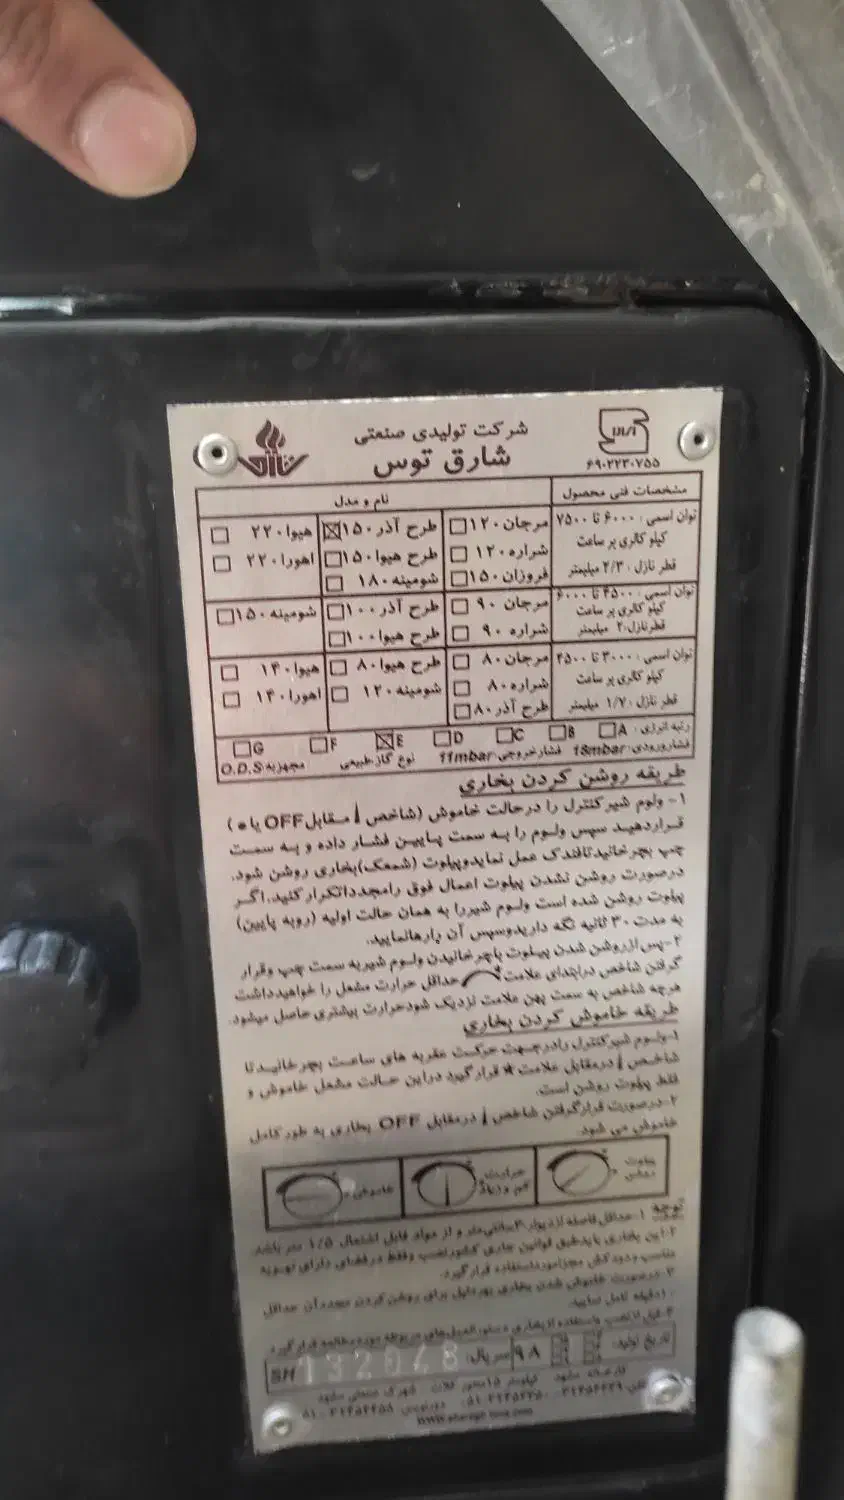 شرکت تولیدی صنعتی
شارق توس
۶۹۰۲۲۳۰۷۵۵
مشخصات فنی محصول
نام و مدل
توان اسمی : ۶۰۰۰ تا ۷۵۰۰
کیلو کالری بر ساعت
قطر نازل : ۲/۳ میلیمتر
مرجان ۱۲۰
شراره ۱۲۰
فروزان ۱۵۰
طرح آذر ۱۵۰
طرح هیوا ۱۵۰
شومینه ۱۸۰
هیوا ۲۲۰
اهورا ۲۲۰
توان اسمی : ۴۵۰۰ تا ۶۰۰۰
کیلو کالری بر ساعت
قطر نازل: ۲ میلیمتر
مرجان ۹۰
شراره ۹۰
طرح آذر ۱۰۰
طرح هیوا ۱۰۰
شومینه ۱۵۰
توان اسمی : ۳۰۰۰ تا ۴۵۰۰
کیلو کالری بر ساعت
قطر نازل : ۱/۷ میلیمتر
مرجان ۸۰
شراره ۸۰
طرح آذر ۸۰
طرح هیوا ۸۰
شومینه ۱۲۰
هیوا ۱۴۰
اهورا ۱۴۰
رتبه انرژی : A B C D E F G
فشار ورودی: 18mbar فشار خروجی: 11mbar نوع گاز:طبیعی مجهز به: O.D.S
طریقه روشن کردن بخاری
۱- ولوم شیر کنترل را در حالت خاموش (شاخص مقابل OFF یا ●)
قرار دهید سپس ولوم را به سمت پایین فشار داده و به سمت
چپ بچرخانید تا فندک عمل نماید و پیلوت (شمعک) بخاری روشن شود.
در صورت روشن نشدن پیلوت اعمال فوق را مجددا تکرار کنید. اگر
پیلوت روشن شده است ولوم شیر را به همان حالت اولیه (رو به پایین)
به مدت ۳۰ ثانیه نگه دارید و سپس آن را رها نمایید.
۲- پس از روشن شدن پیلوت با چرخانیدن ولوم شیر به سمت چپ و قرار
گرفتن شاخص در ابتدای علامت حداقل حرارت مشعل را خواهید داشت
هرچه شاخص به سمت پهن علامت نزدیک شود حرارت بیشتری حاصل میشود.
طریقه خاموش کردن بخاری
۱- ولوم شیر کنترل را در جهت حرکت عقربه های ساعت بچرخانید تا
شاخص در مقابل علامت * قرار گیرد در این حالت مشعل خاموش و
فقط پیلوت روشن است.
۲- در صورت قرار گرفتن شاخص در مقابل OFF بخاری به طور کامل
خاموش می شود.
پیلوت
روشن
حرارت
کم و زیاد
خاموش
توجه ۱- حداقل فاصله از دیوار سانتی متر و از مواد قابل اشتعال ۱/۵ متر باشد
۲- این بخاری باید طبق قوانین جاری کشور نصب و فقط در فضای دارای تهویه
مناسب و دودکش مجزا مورد استفاده قرار گیرد.
۳- در صورت خاموش شدن بخاری بهر دلیل برای روشن کردن مجدد آن حداقل
دقیقه تامل نمایید.
۴- قبل از نصب و استفاده از بخاری دستورالعمل های مربوطه مورد مطالعه قرار گیرد
تاریخ تولید: ۹۸ سریال: SH 132048
کارخانه: مشهد کیلومتر ۱۵ جاده کلات شهرک صنعتی مشهد